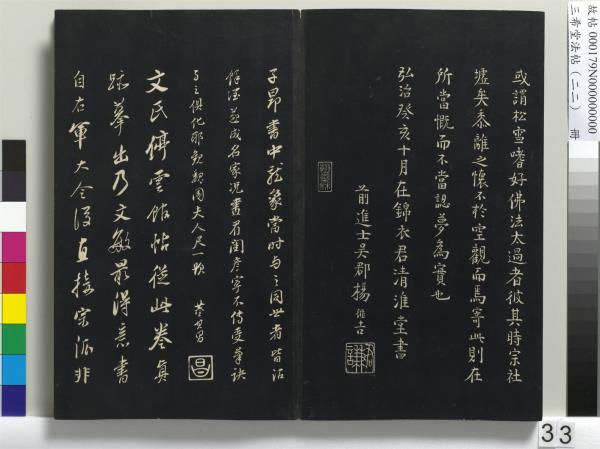 或謂松雪嗜好佛法太過者彼其時宗社
墟矣黍離之懷不於空觀而焉寄此則在
所當慨而不當認夢為實也
弘治癸亥十月在錦衣君清淮堂書
前進士吳郡楊循吉
子昂書中龍象當時與之同世者皆沾
溉遂成名家況書有閨彥寧不傳受筆訣
與之俱化邪敬觀周夫人尺一題
其昌
昌
文氏停雲館帖從此卷真
跡摹出乃文敏最得意書
自右軍大令後直接宗派非
故帖 000179N000000000
三希堂法帖(二二) 冊
33